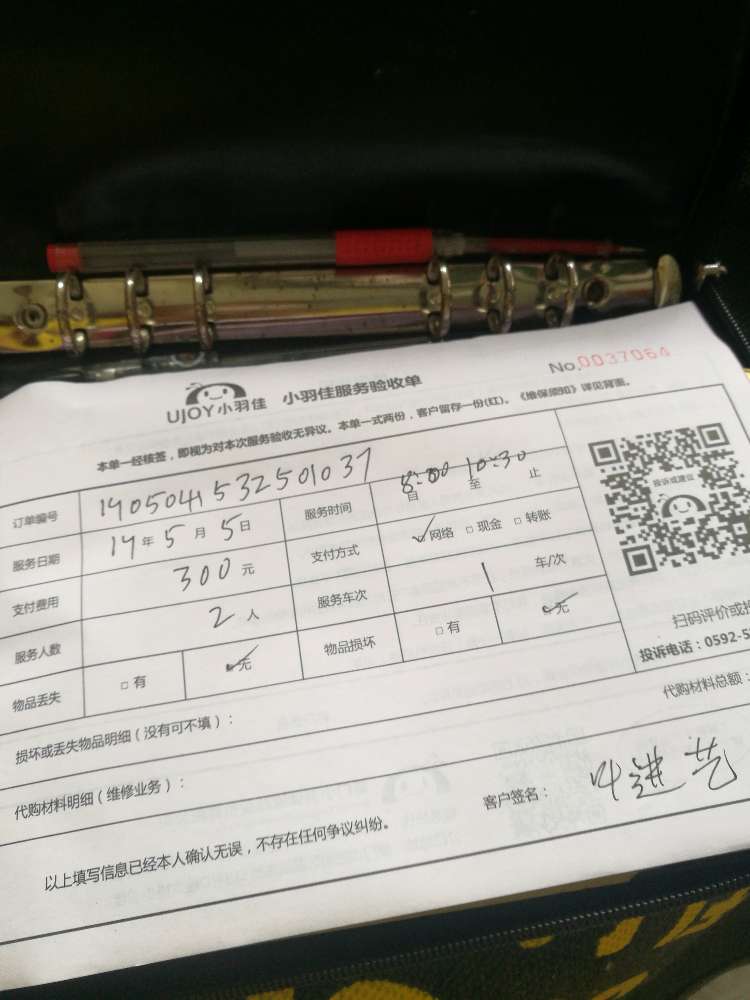 No.0037064
UJOY小羽佳 小羽佳服务验收单
本单一经核签，即视为对本次服务验收无异议。本单一式两份，客户留存一份(红)。《维保须知》详见背面。
订单编号 1905041532501037 服务时间 8:00 10:30 自 至 止
服务日期 19年5月5日 支付方式 网络 现金 转账
支付费用 300元 服务车次 1 车/次
服务人数 2人 物品损坏 有 无
物品丢失 有 无
投诉或建议
扫码评价或投
投诉电话：0592-5
损坏或丢失物品明细（没有可不填）：
代购材料总额：
代购材料明细（维修业务）：
客户签名： 叶进艺
以上填写信息已经本人确认无误，不存在任何争议纠纷。